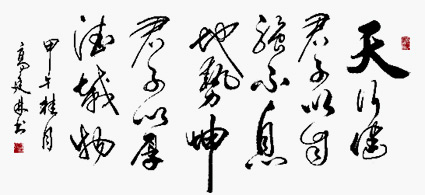 天行健
君子以自
强不息
地势坤
君子以厚
德载物
甲午桂月
高延林书